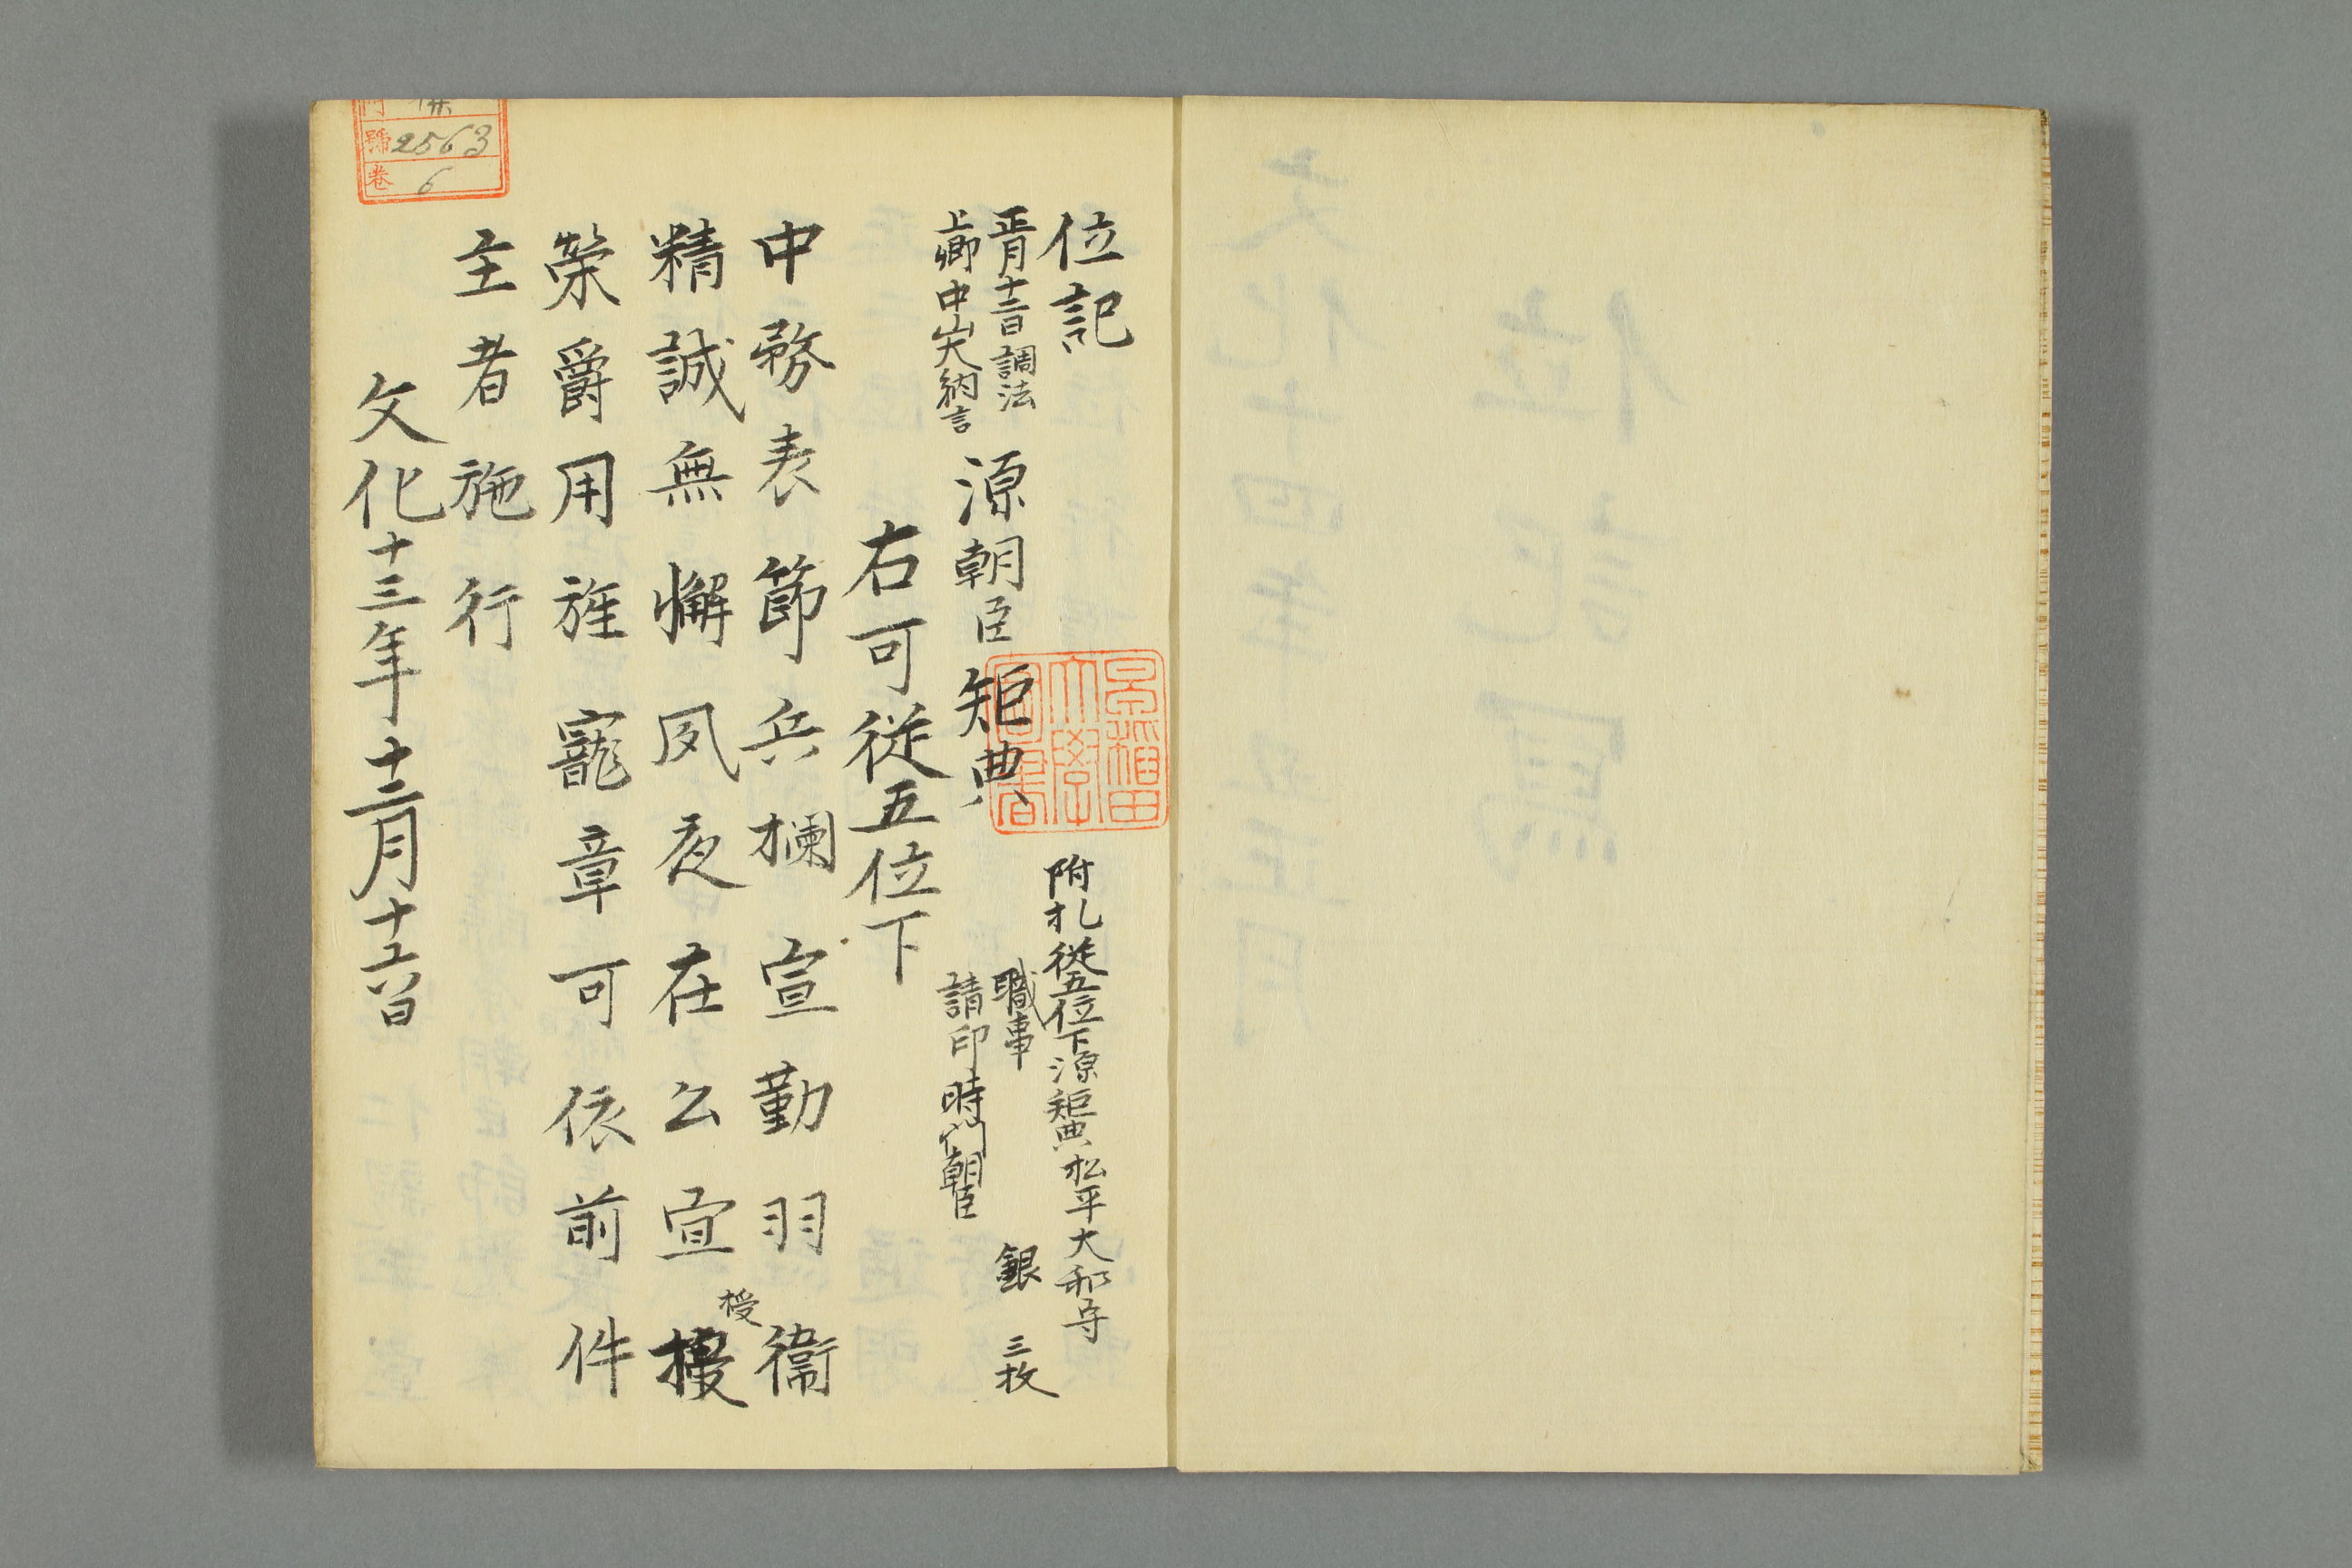 位記
附札従五位下源矩典松平大和守
正月十二日調法
上卿中山大納言
源朝臣矩典
職事
請印時門朝臣
銀 三枚
右可従五位下
中務表節兵欄宣勤羽衛
精誠無懈夙夜在公宜授
授
榮爵用旌寵章可依前件
主者施行
文化十三年十二月十六日
早稲田
大学
図書
門
號2563
卷6